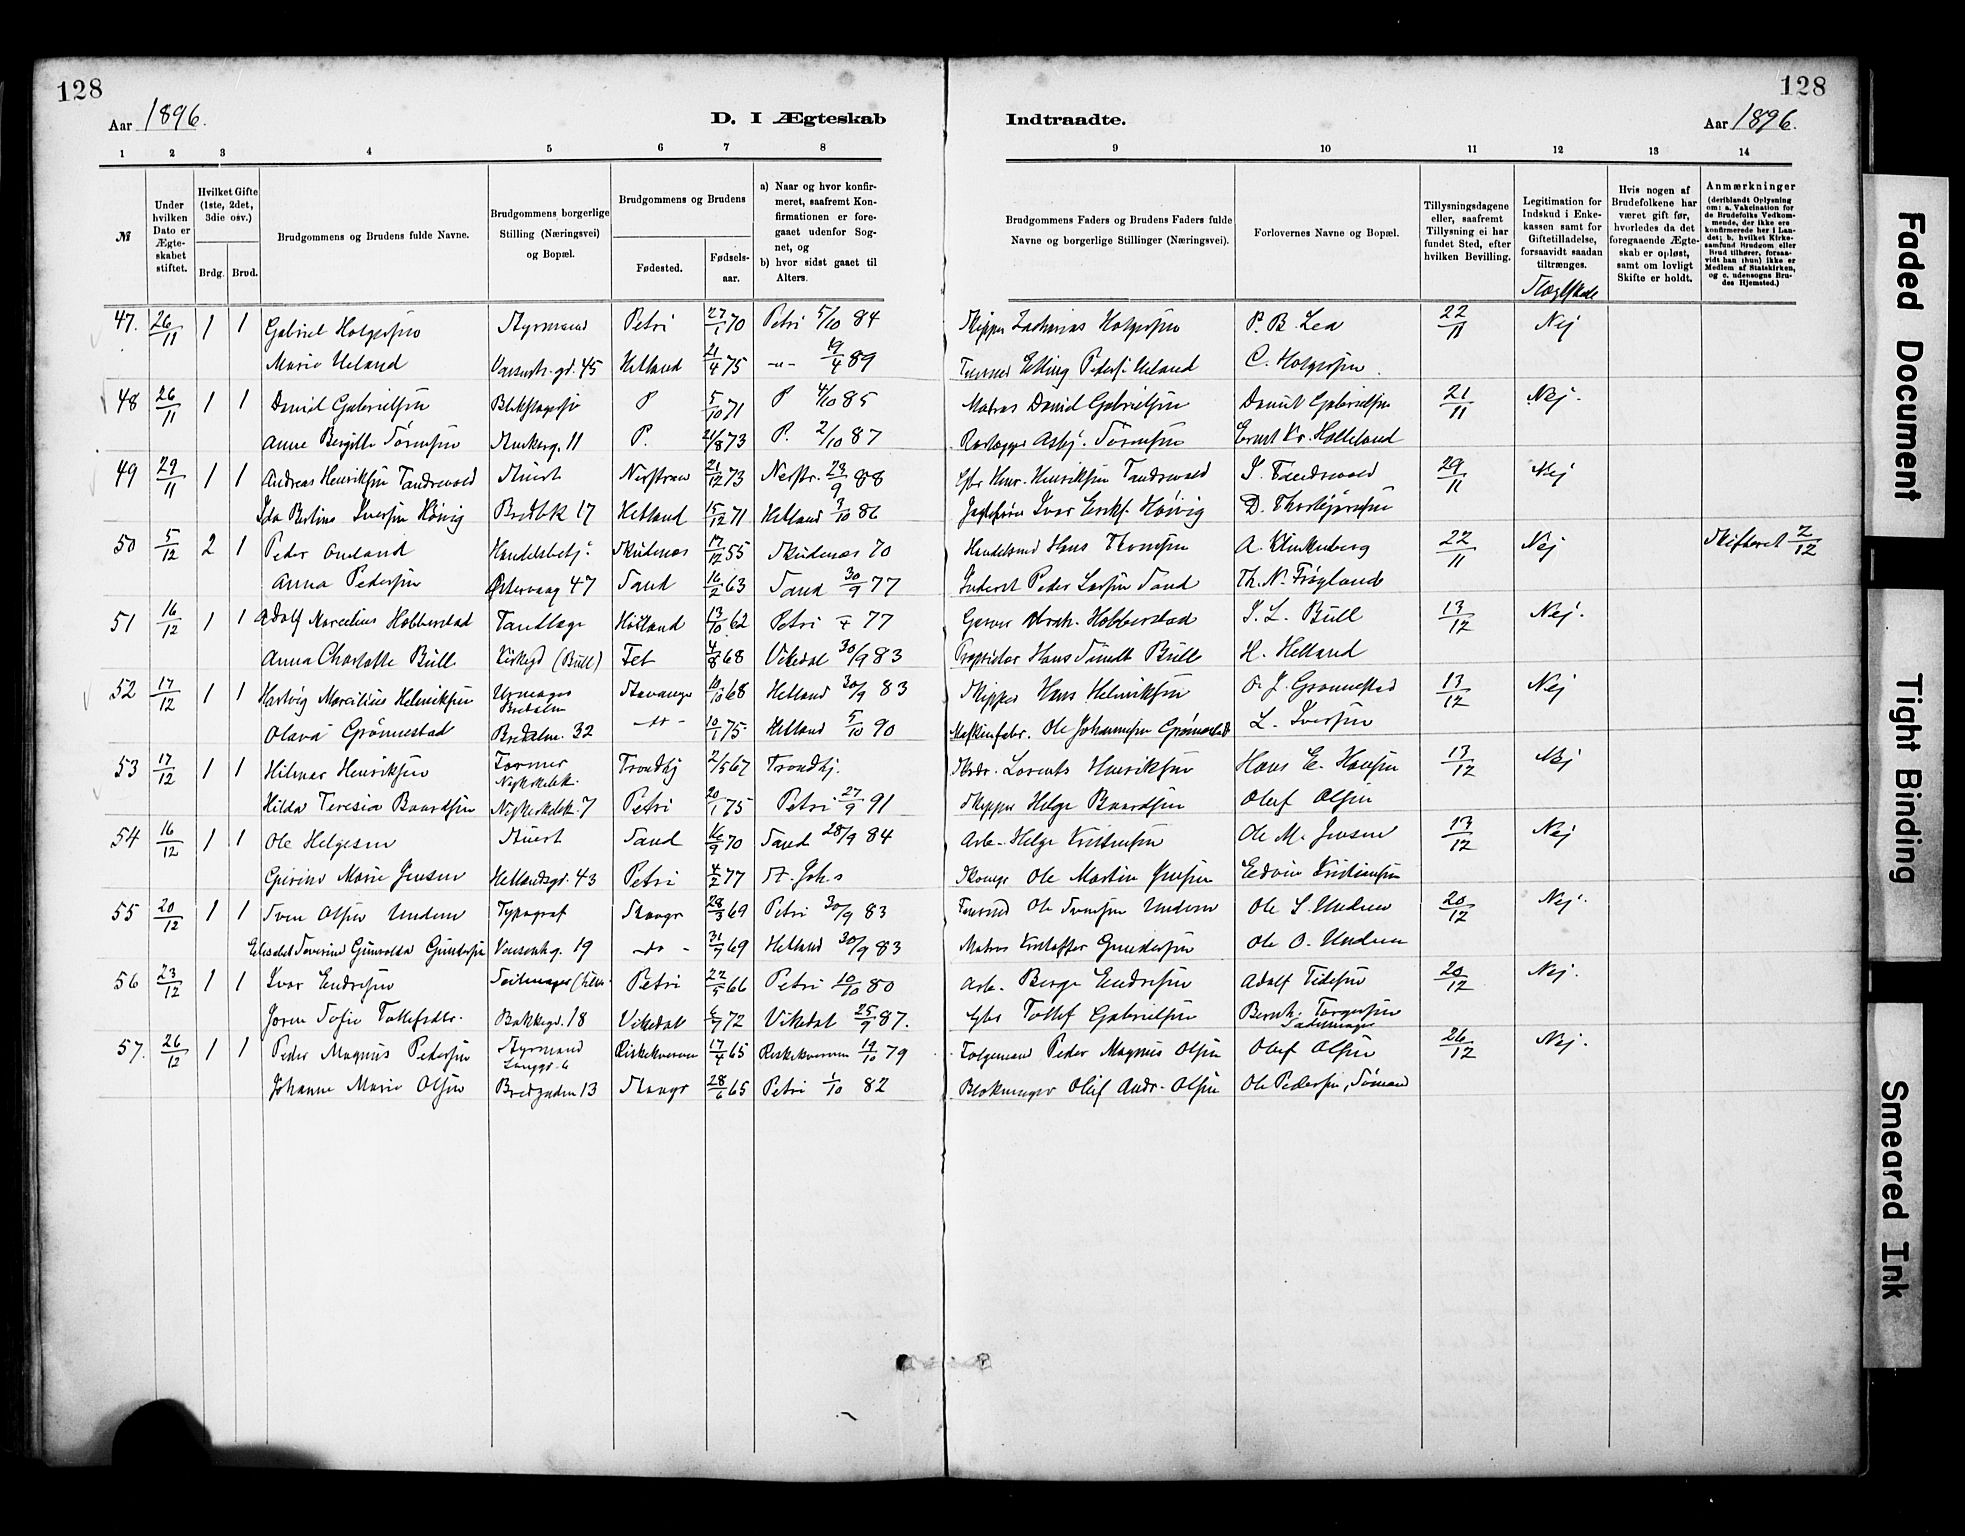 128
128
Aar 1896.
D. I Ægteskab
Indtraadte.
Aar 1896.
1 2 3 4 5 6 7 8
9 10 11 12 13 14
№
Under hvilken Dato er Ægteskabet stiftet.
Hvilket Gifte (1ste, 2det, 3die osv.)
Brdg. Brud.
Brudgommens og Brudens fulde Navne.
Brudgommens borgerlige Stilling (Næringsvei) og Bopæl.
Brudgommens og Brudens
Fødested.
Fødselsaar.
a) Naar og hvor konfirmeret, saafremt Konfirmationen er foregaaet udenfor Sognet, og
b) hvor sidst gaaet til Alters.
Brudgommens Faders og Brudens Faders fulde Navne og borgerlige Stillinger (Næringsvei).
Forlovernes Navne og Bopæl.
Tillysningsdagene eller, saafremt Tillysning ei har fundet Sted, efter hvilken Bevilling.
Legitimation for Indskud i Enkekassen samt for Giftetilladelse, forsaavidt saadan tiltrænges.
Hvis nogen af Brudefolkene har været gift før, hvorledes da det foregaaende Ægteskab er opløst, samt om lovligt Skifte er holdt.
Anmærkninger (deriblandt Oplysning om: a. Vakcination for de Brudefolks Vedkommende, der ikke ere konfirmerede her i Landet; b. hvilket Kirkesamfund Brudgom eller Brud tilhører, forsaavidt han (hun) ikke er Medlem af Statskirken, og c. udensogns Brudes Hjemsted.)
47. 26/11 1 1 Gabriel Holgersen Styrmand Petri 27/1 70 Petri 5/10 84 Skipper Zacharias Holgersen P. B. Lea 22/11 Nej
Marie Ueland 45 Hetland 21/4 75 -"- 19/4 89 Elling Peders. Ueland C. Holgersen
48 26/11 1 1 Daniel Gabrielsen P 5/10 71 P 4/10 85 Matros Daniel Gabrielsen Daniel Gabrielsen 21/11 Nej.
Anne Bergitte Tørresen 11 P. 21/8 73 P. 2/10 87 Asbj. Tørresen
49 29/11 1 1 Andreas Henriksen Tandrevold Nerstrand 21/12 73 Nerstr. 23/9 88 Henr. Henriksen Tandrevold S. Tandrevold 29/11 Nej
Ida Bertine Iversen Høivig Bredbk 17 Hetland 15/12 71 Hetland 3/10 86 Ivar Eriks. Høivig D. Thorbjørnsen
50 5/12 2 1 Peder Omland Handelsbetj. Skudenes 17/12 55 Skudenes 70 Handelsmd Hans A. Klinkenberg 22/11 Nej Skifteret 2/12
Anna Pedersen Østervaag 47 Sand 16/2 63 Sand 30/9 77 Peder Larsen Sand Th. N. Frøyland
51 16/12 1 1 Adolf Marcelius Hobberstad Tandlæge Hetland 13/10 62 Petri 77 Garver Hobberstad S. L. Bull 13/12 Nej.
Anna Charlotte Bull Kirkegd (Bull) Fet 4/8 68 Vikedal 30/9 83 Proprietær Hans Sundt Bull H. Helland
52 17/12 1 1 Hartvig Marcelius Helmiksen Urmager Stavanger 10/10 68 Hetland 30/9 83 Skipper Hans Helmiksen O. J. Grønnestad 13/12 Nej
Olava Grønnestad 32 -do- 10/1 75 Hetland 5/10 90 Maskinfabr. Ole Johannesen Grønnestad L. Iversen
53 17/12 1 1 Hilmar Henriksen Former Trondhj 2/5 67 Trondhj. Lorents Henriksen Hans E. Hansen 13/12 Nej
Hilda Teresia Baardsen 7 Petri 20/1 75 Petri 27/9 91 Skipper Helge Baardsen Oluf Olsen
54 16/12 1 1 Ole Helgesen Sand 16/9 70 Sand 28/9 84 Arb. Helge Kristensen Ole M. Jensen 13/12 Nej
Marie Jensen Hetlandsgd. 43 Petri 4/2 77 St. Joh.s Ole Martin Jensen Edvin Kristiansen
55 20/12 1 1 Sven Olsen Undem Typograf Stavgr 28/3 69 Petri 30/9 83 Ole Svensen Undem Ole S. Undem 20/12 Nej.
Elisabet Severine Gunvalda Gundersen 19 -do- 31/7 69 Hetland 30/9 83 Matros Kristoffer Gundersen Ole O. Undem
56 23/12 1 1 Ivar Endresen Seilmager Petri 22/5 66 Petri 10/10 80 Arb. Berge Endresen Adolf Tidesen 20/12 Nej.
Joren Sofie Tollefsdtr. Bakkegd. 18 Vikedal 6/7 72 Vikedal 25/9 87. Gbr Tollef Gabrielsen Bernh. Torgersen Sadelmager
57. 26/12 1 1 Peder Magnus Pedersen Styrmand Langgt. 6 Kirkekvarm 17/4 65 Kirkekvarm 19/10 79 Peder Magnus Olsen Oluf Olsen 26/12 Nej.
Johanne Marie Olsen Bredgaden 13 Stavgr 28/6 65 Petri 1/10 82 Blokmager Oluf Andr. Olsen Ole Pedersen, Sømand
Faded Document
Tight Binding
Smeared Ink